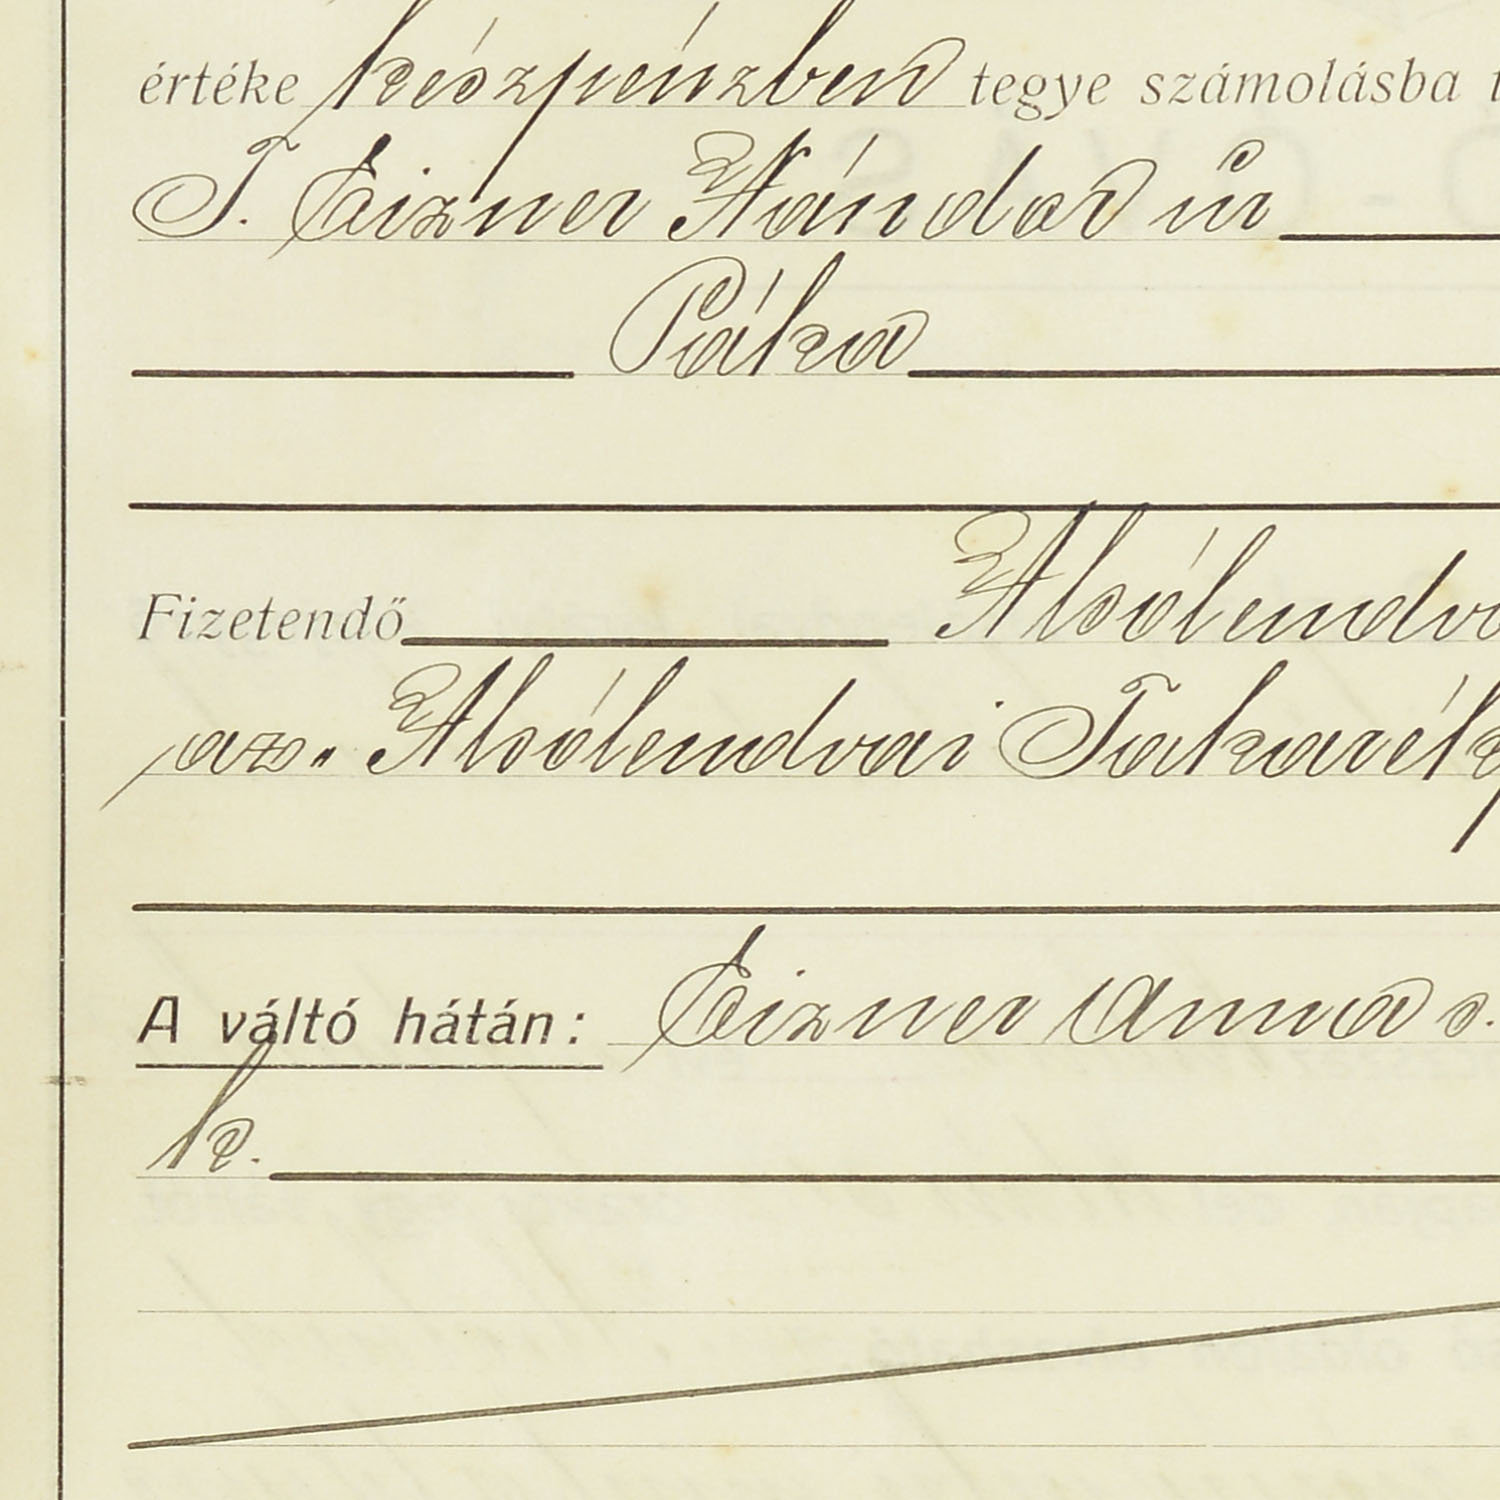 értéke készpénzben tegye számolásba
T. Eizner Nándor úr
Páka
Fizetendő Alsólendva
az. Alsólendvai Takarékp
A váltó hátán: Eizner Anna s.
k.